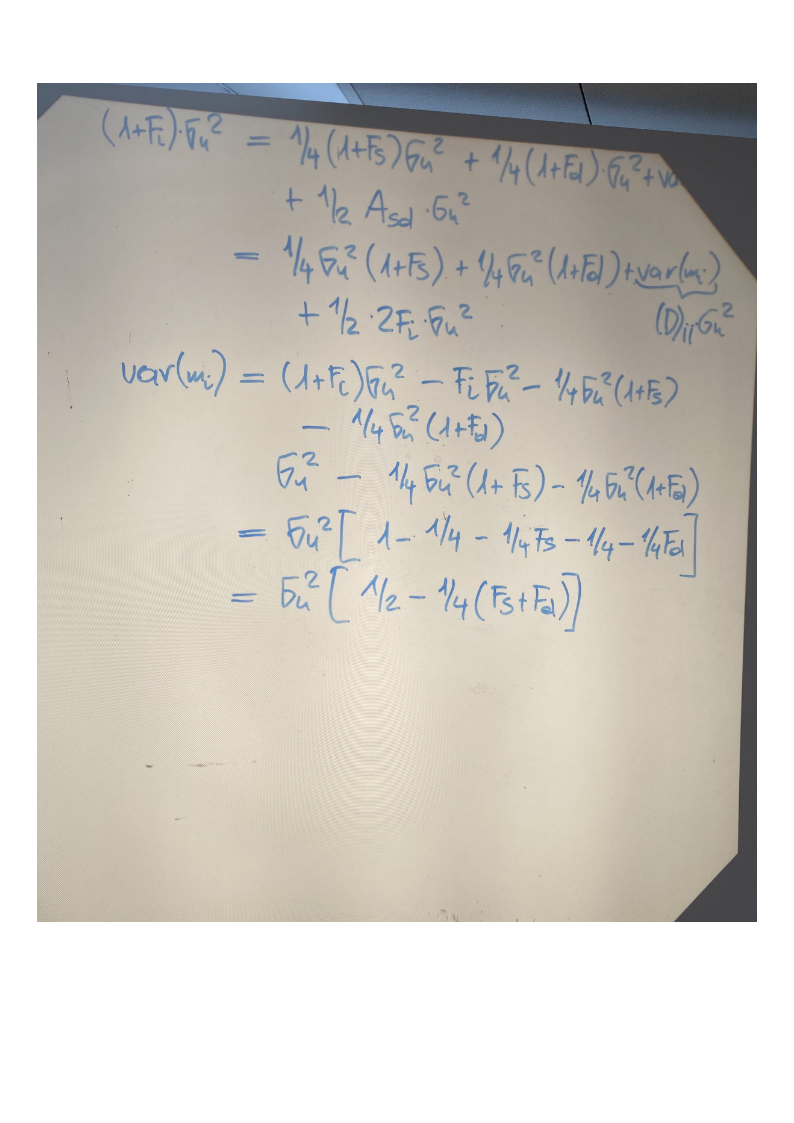 (1+Fi)·σu² = 1/4(1+Fs)σu² + 1/4(1+Fd)·σu² + va
+ 1/2 Asd·σu²
= 1/4 σu²(1+Fs) + 1/4 σu²(1+Fd) + var(mi)
+ 1/2 · 2Fi·σu² (D)ii·σu²
var(mi) = (1+Fi)σu² − Fi σu² − 1/4 σu²(1+Fs)
− 1/4 σu²(1+Fd)
σu² − 1/4 σu²(1+Fs) − 1/4 σu²(1+Fd)
= σu² [ 1 − 1/4 − 1/4 Fs − 1/4 − 1/4 Fd ]
= σu² [ 1/2 − 1/4 (Fs+Fd) ]